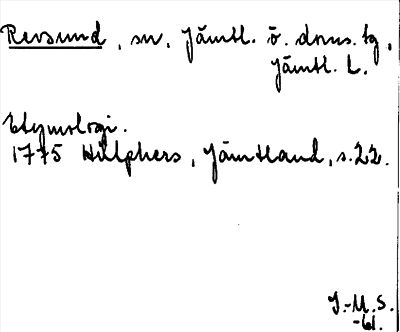 Revsund, sn, Jämtl. ö. doms. tg,
Jämtl. L.
Etymologi.
1775 Hülphers, Jämtland, s. 22.
J.-M. S.
-61.